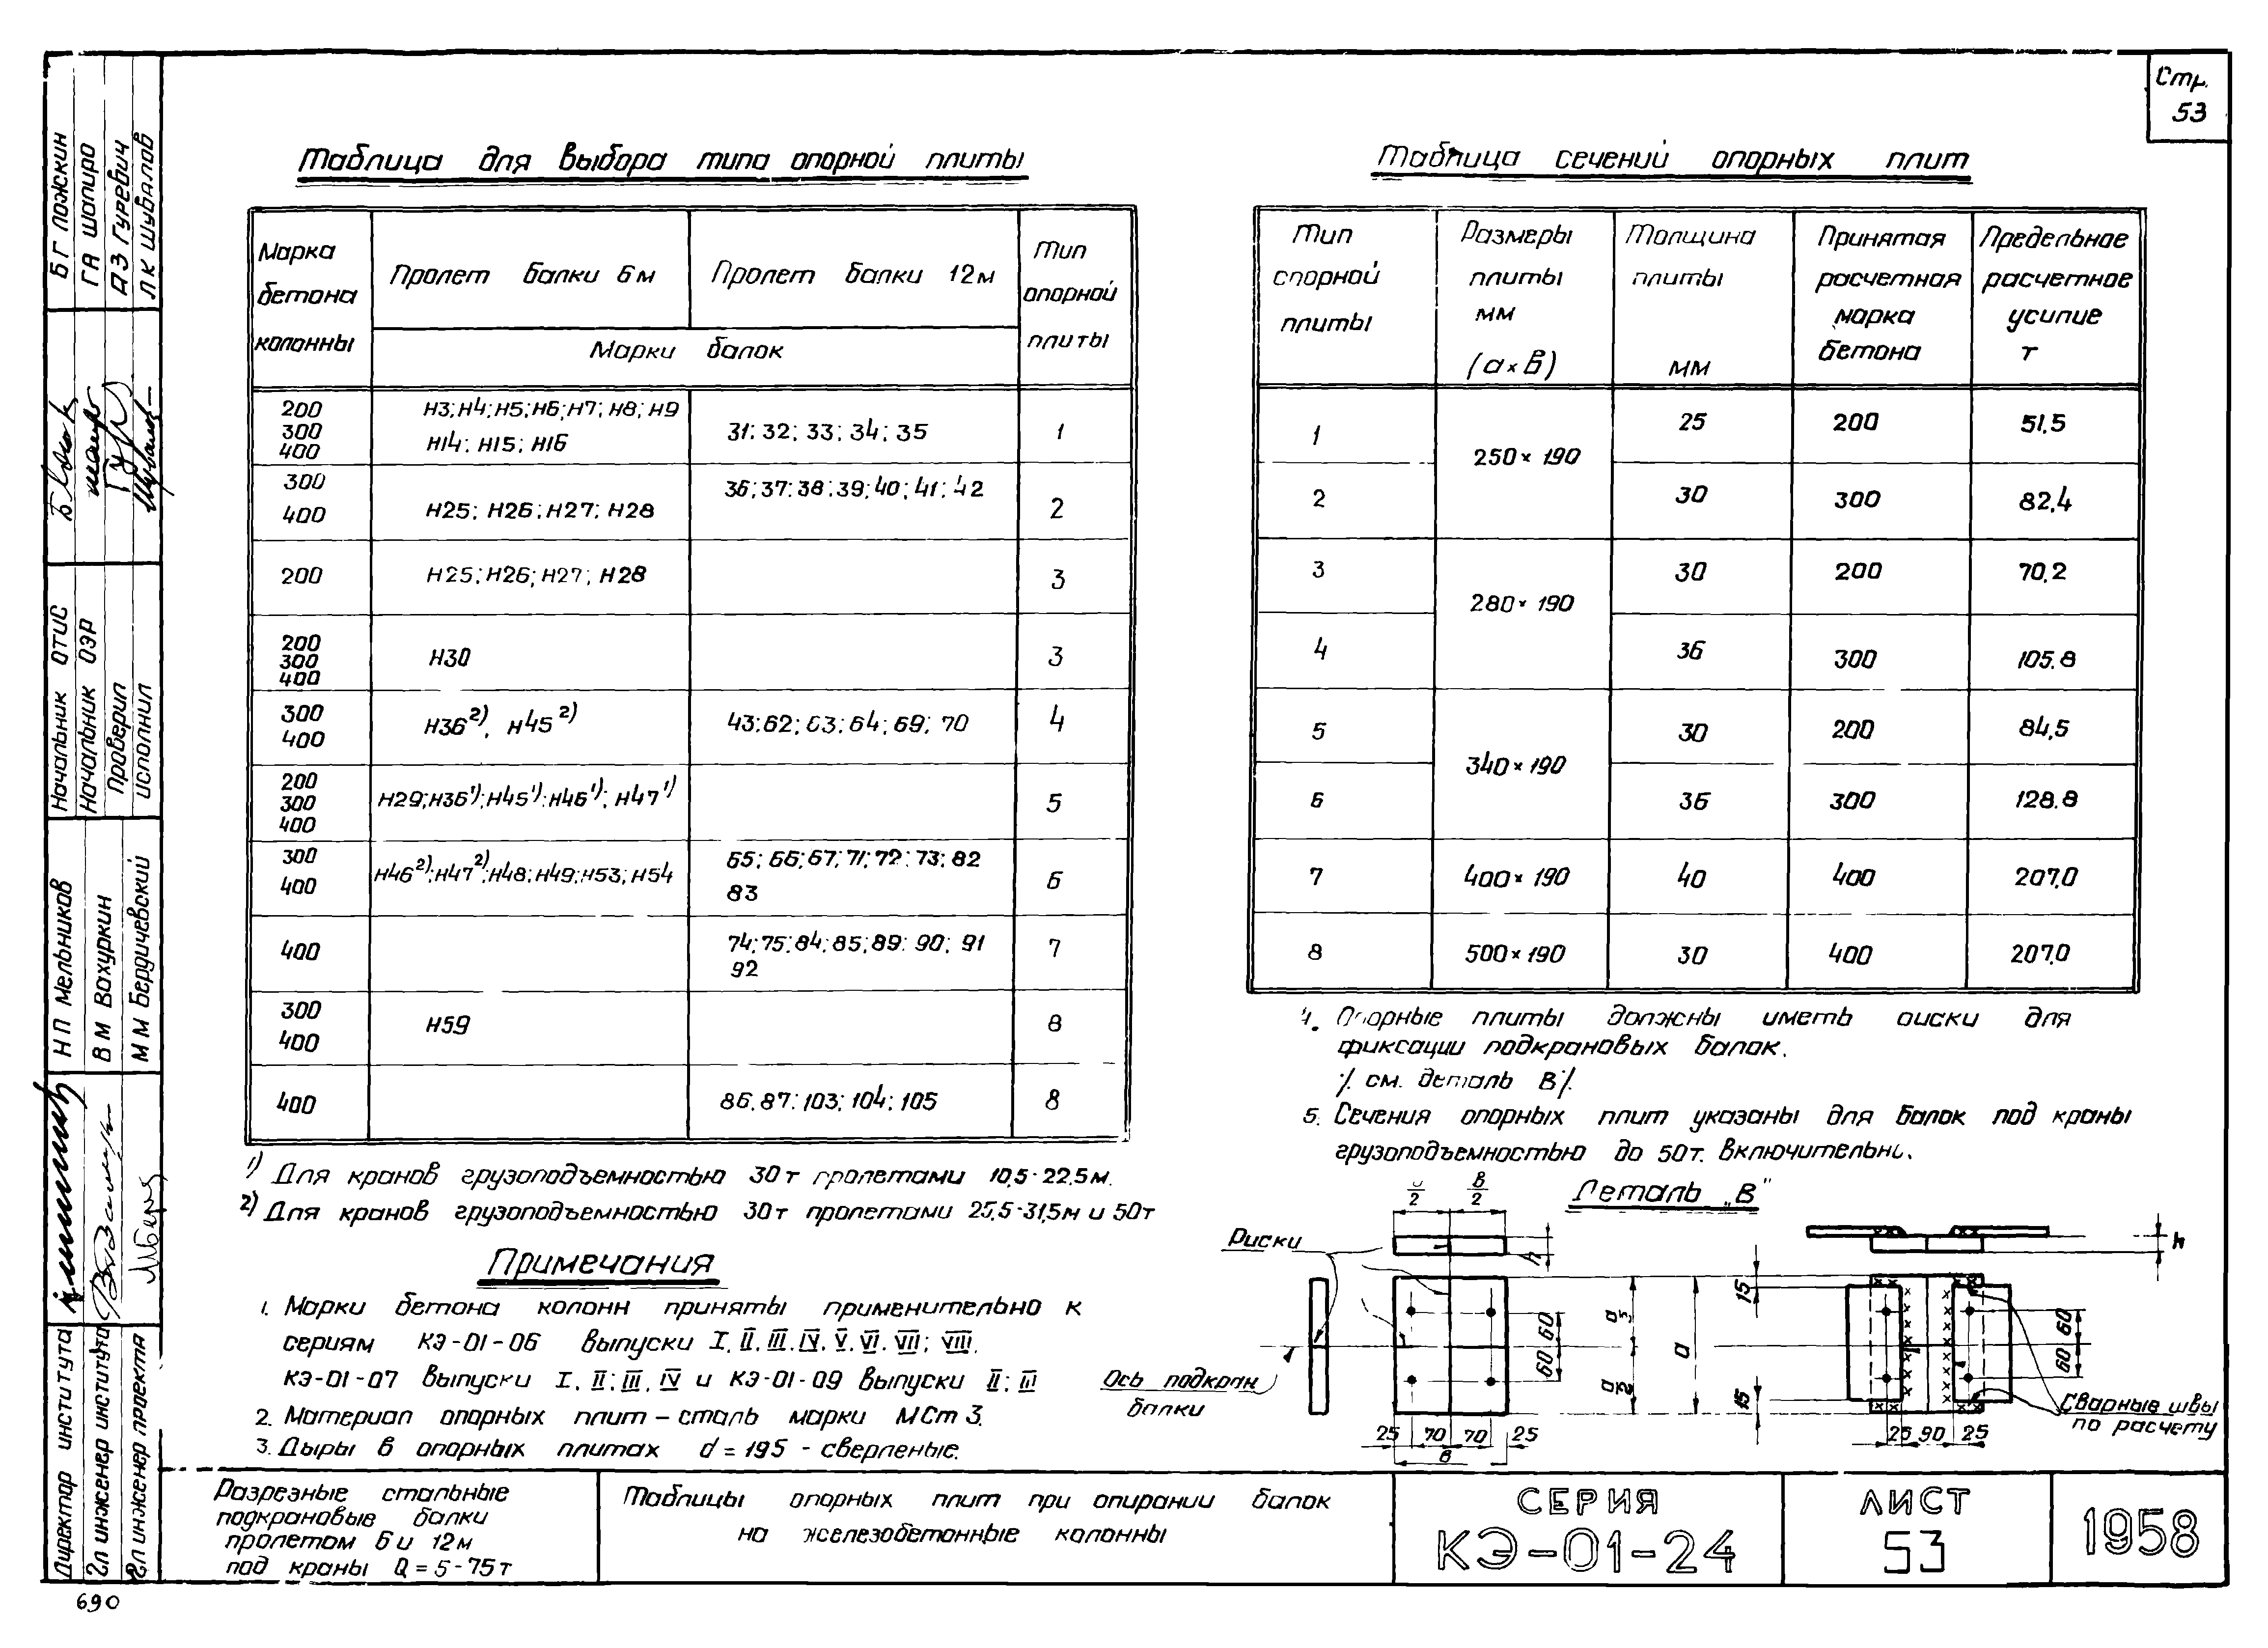 Стр.
53
Таблица для выбора типа опорной плиты
Марка бетона колонны
Пролет балки 6м
Пролет балки 12м
Тип опорной плиты
Марки балок
200 300 400
Н3; Н4; Н5; Н6; Н7; Н8; Н9
Н14; Н15; Н16
31; 32; 33; 34; 35
1
300 400
Н25; Н26; Н27; Н28
36; 37; 38; 39; 40; 41; 42
2
200
Н25; Н26; Н27; Н28
3
200 300 400
Н30
3
300 400
Н36²⁾, Н45²⁾
43; 62; 63; 64; 69; 70
4
200 300 400
Н29; Н36¹⁾; Н45¹⁾; Н46¹⁾; Н47¹⁾
5
300 400
Н46²⁾; Н47²⁾; Н48; Н49; Н53; Н54
65; 66; 67; 71; 72; 73; 82
83
6
400
74; 75; 84; 85; 89; 90; 91
92
7
300 400
Н59
8
400
86; 87; 103; 104; 105
8
1) Для кранов грузоподъемностью 30т пролетами 10,5-22,5м.
2) Для кранов грузоподъемностью 30т пролетами 25,5-31,5м и 50т
Примечания
1. Марки бетона колонн приняты применительно к
сериям КЭ-01-06 выпуски I, II, III, IV, V, VI, VII; VIII,
КЭ-01-07 выпуски I, II; III, IV и КЭ-01-09 выпуски II; III
2. Материал опорных плит - сталь марки МСт 3.
3. Дыры в опорных плитах d = 19,5 - сверленые.
Таблица сечений опорных плит
Тип опорной плиты
Размеры плиты мм (а×в)
Толщина плиты мм
Принятая расчетная марка бетона
Предельное расчетное усилие т
1
250×190
25
200
51,5
2
30
300
82,4
3
280×190
30
200
70,2
4
36
300
105,8
5
340×190
30
200
84,5
6
36
300
128,8
7
400×190
40
400
207,0
8
500×190
30
400
207,0
4. Опорные плиты должны иметь риски для
фиксации подкрановых балок.
/. см. деталь В/.
5. Сечения опорных плит указаны для балок под краны
грузоподъемностью до 50т. включительно.
Деталь „В"
Риски
а/2
в/2
h
а/2
а/2
а
60
60
Ось подкран
балки
25 70 70 25
в
h
15
15
60
60
25 90 25
Сварные швы
по расчету
Разрезные стальные
подкрановые балки
пролетом 6 и 12м
под краны Q = 5-75т
Таблицы опорных плит при опирании балок
на железобетонные колонны
СЕРИЯ
КЭ-01-24
ЛИСТ
53
1958
БГ Ложкин
ГА Шапиро
АЗ Гуревич
ЛК Шувалов
Начальник ОТИС
Начальник ОЭР
Проверил
Исполнил
НП Мельников
ВМ Вахуркин
ММ Бердичевский
Директор института
Гл инженер института
Гл инженер проекта
690